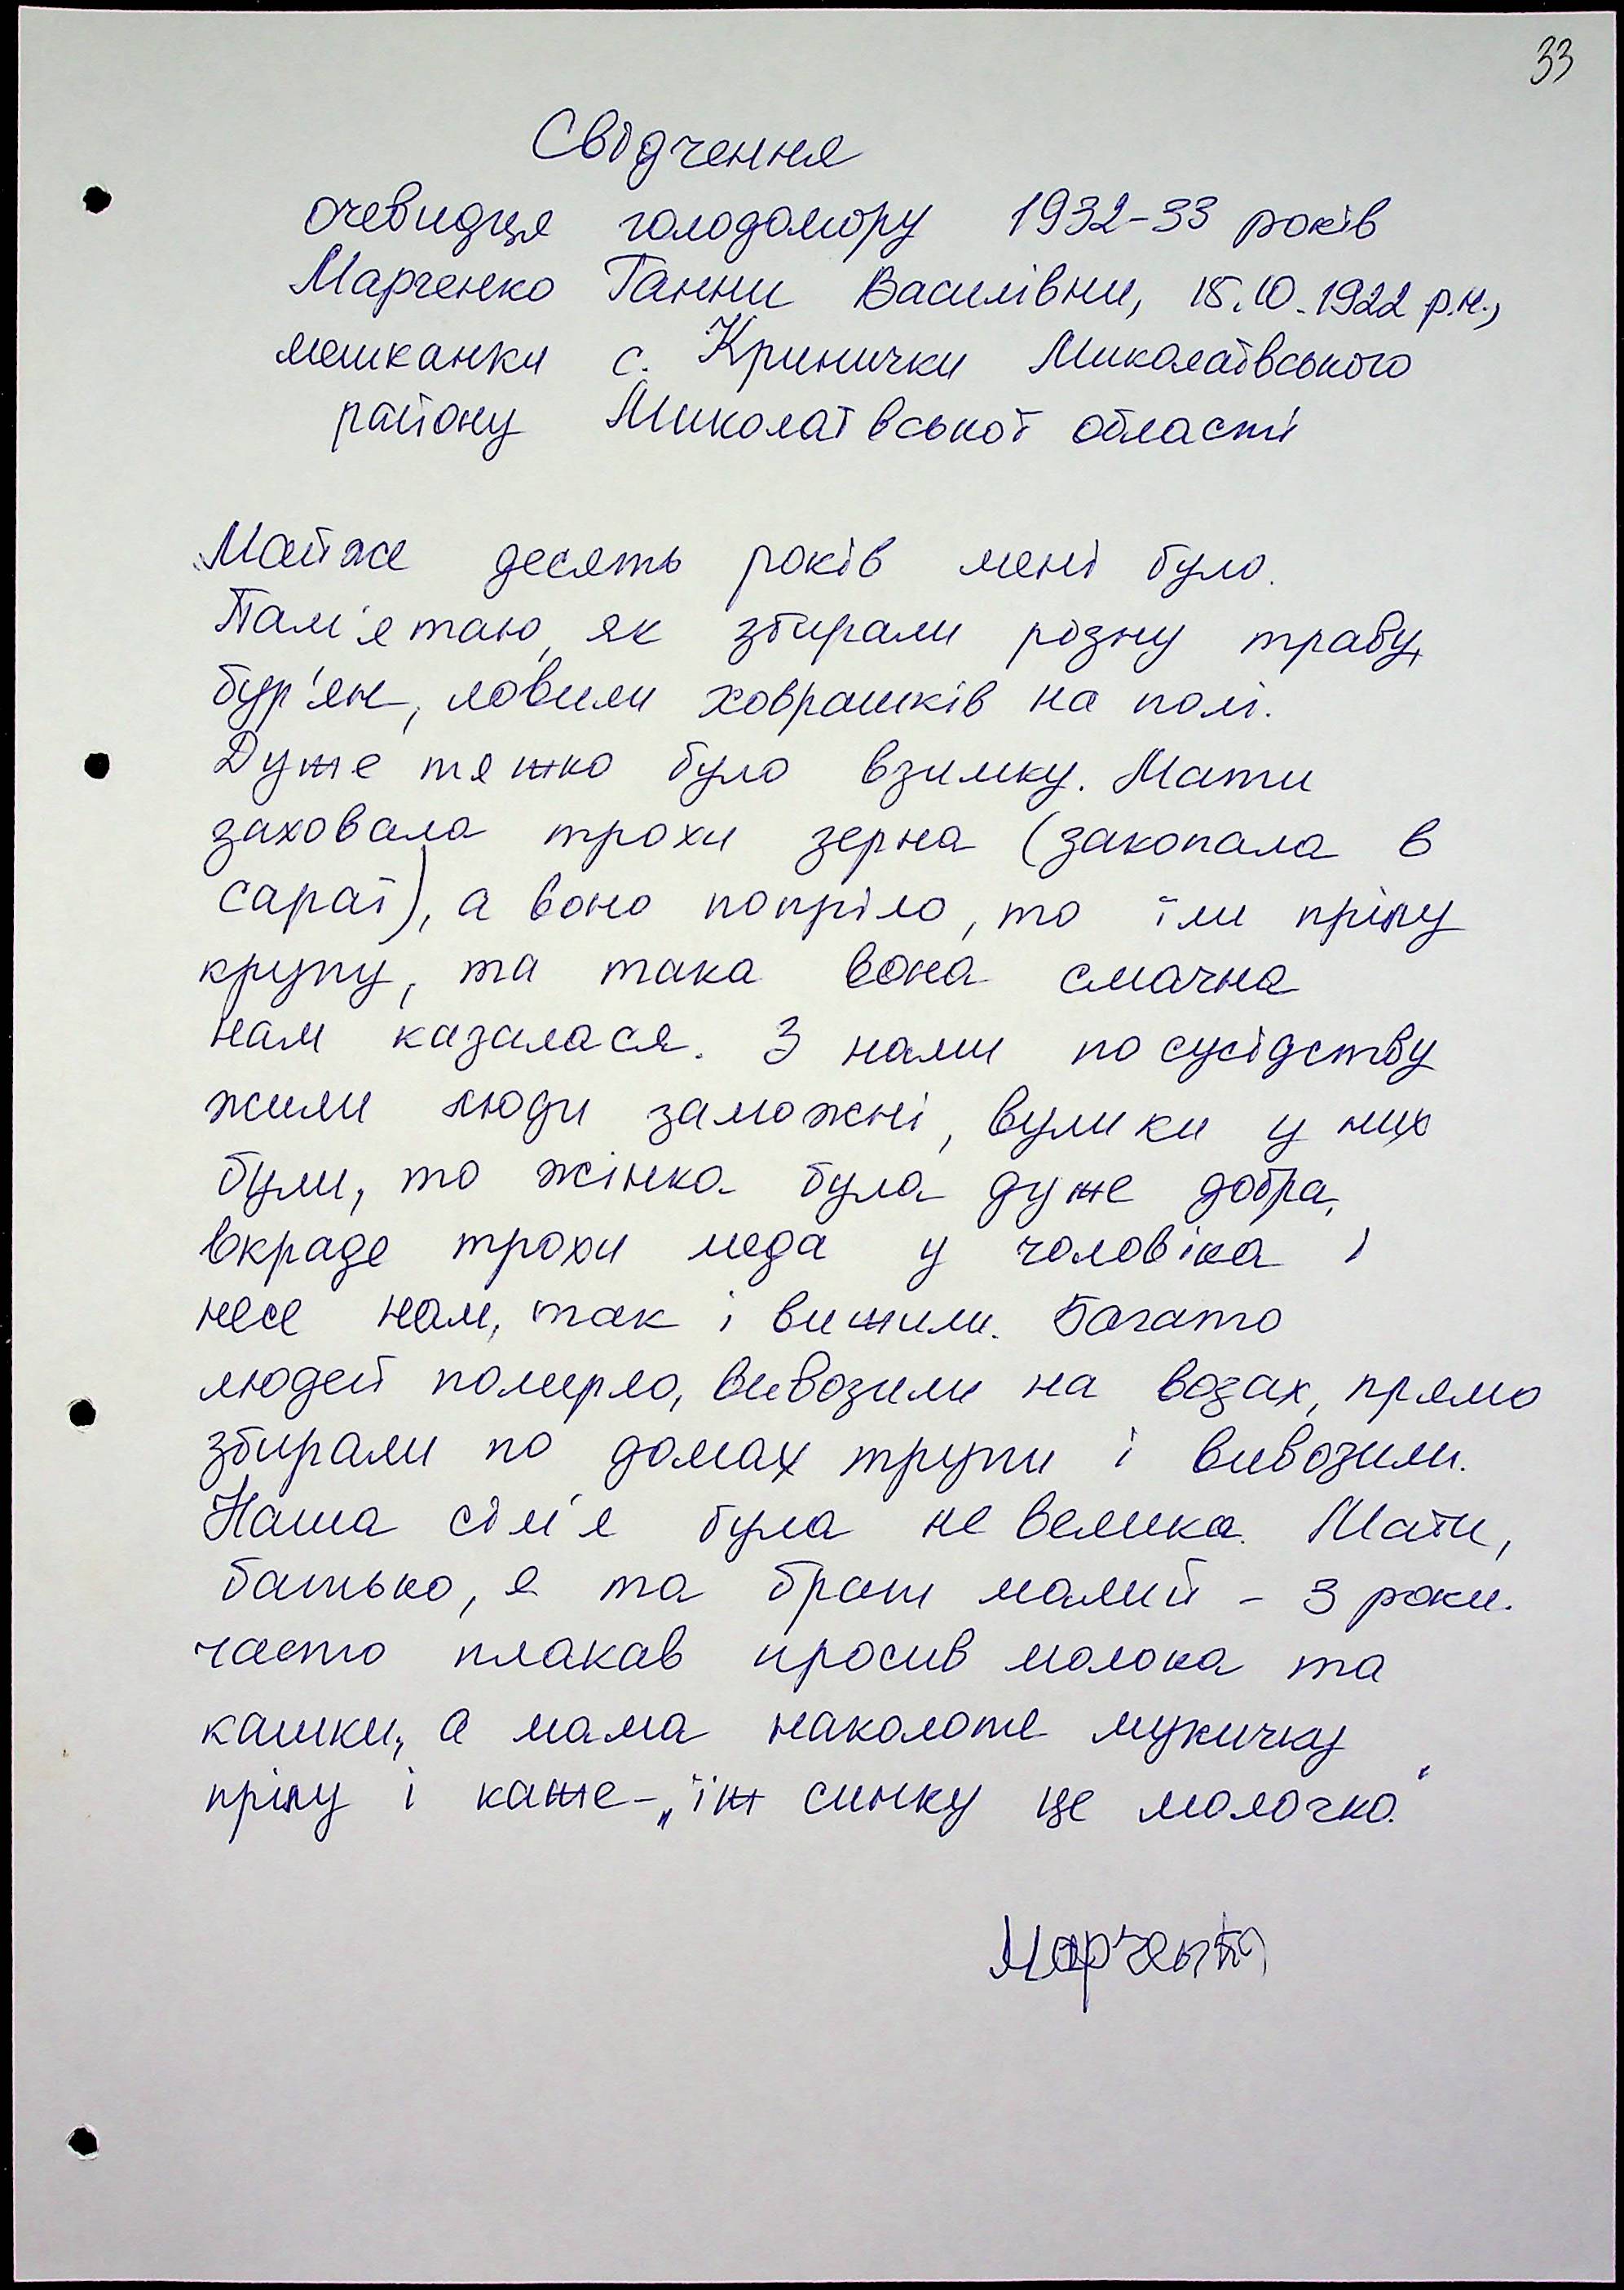 33
Свідчення
очевидця голодомору 1932-33 років
Марченко Ганни Василівни, 15.10.1922 р.н.,
мешканки с. Кринички Миколаївського
району Миколаївської області
Майже десять років мені було.
Пам'ятаю, як збирали різну траву,
бур'ян, ловили ховрашків на полі.
Дуже тяжко було взимку. Мати
заховала трохи зерна (закопала в
сараї), а воно попріло, то їли прілу
крупу, та така вона смачна
нам казалася. З нами по сусідству
жили люди заможні, вулики у них
були, то жінка була дуже добра,
вкраде трохи меда у чоловіка і
несе нам, так і вижили. Багато
людей померло, вивозили на возах, прямо
збирали по домах трупи і вивозили.
Наша сім'я була не велика. Мати,
батько, я та брат малий - 3 роки.
часто плакав просив молока та
кашки, а мама наколоте мукичку
прілу і каже - „їж синку це молочко."
Марченко